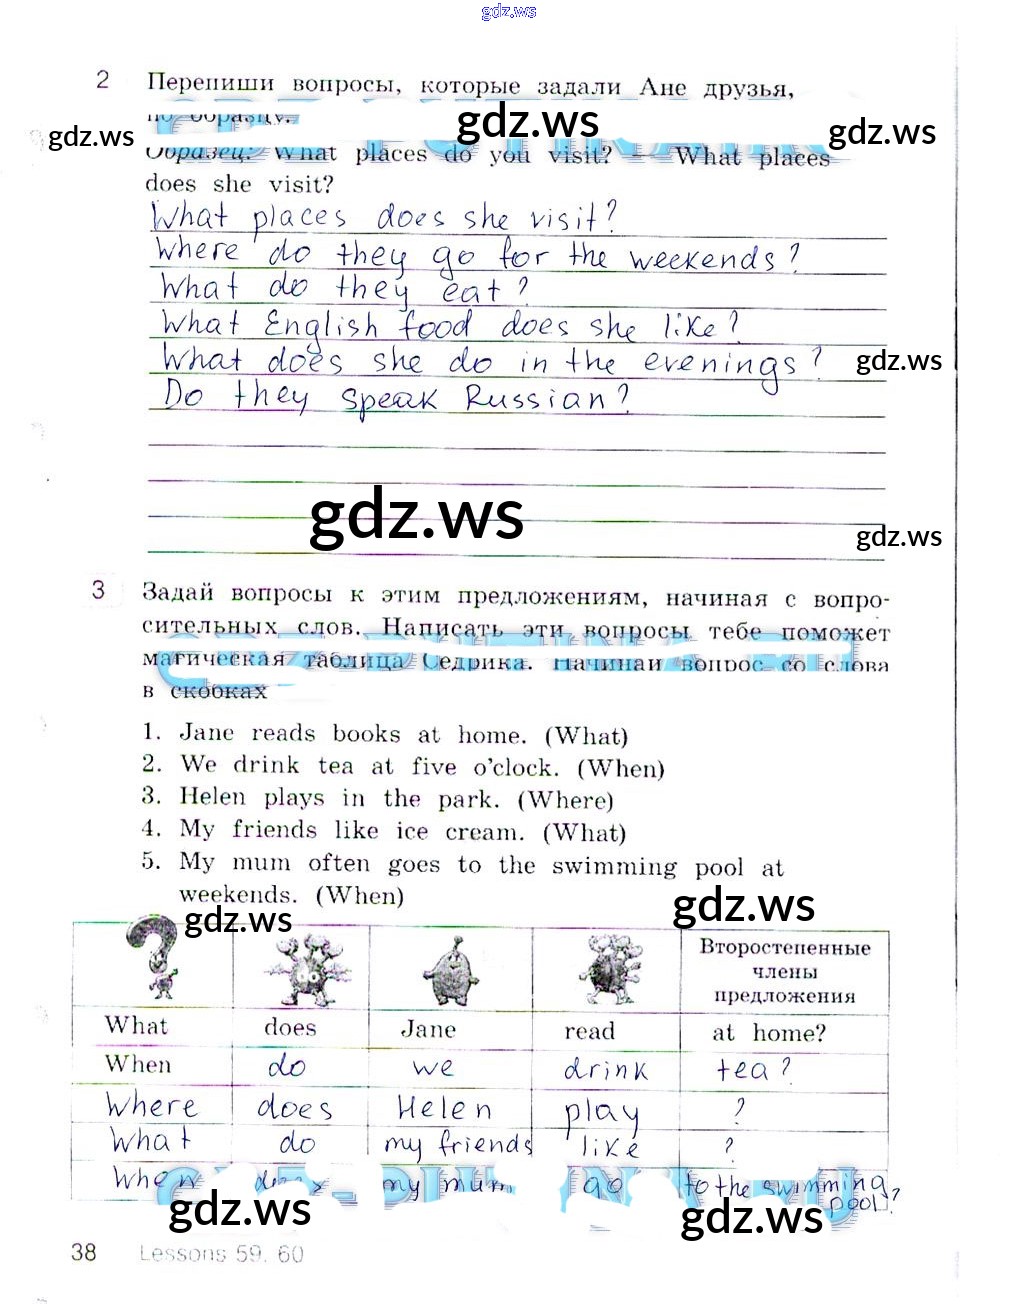 gdz.ws
2 Перепиши вопросы, которые задали Ане друзья,
по образцу.
gdz.ws gdz.ws gdz.ws
Образец: What places do you visit? — What places
does she visit?
What places does she visit?
Where do they go for the weekends?
What do they eat?
What English food does she like?
What does she do in the evenings?
gdz.ws
Do they speak Russian?
gdz.ws
gdz.ws
3 Задай вопросы к этим предложениям, начиная с вопро-
сительных слов. Написать эти вопросы тебе поможет
магическая таблица Седрика. Начинай вопрос со слова
в скобках
1. Jane reads books at home. (What)
2. We drink tea at five o'clock. (When)
3. Helen plays in the park. (Where)
4. My friends like ice cream. (What)
5. My mum often goes to the swimming pool at
weekends. (When)
gdz.ws gdz.ws
Второстепенные
члены
предложения
What does Jane read at home?
When do we drink tea?
Where does Helen play ?
What do my friends like ?
When does my mum go to the swimming
pool?
gdz.ws gdz.ws
38 Lessons 59, 60